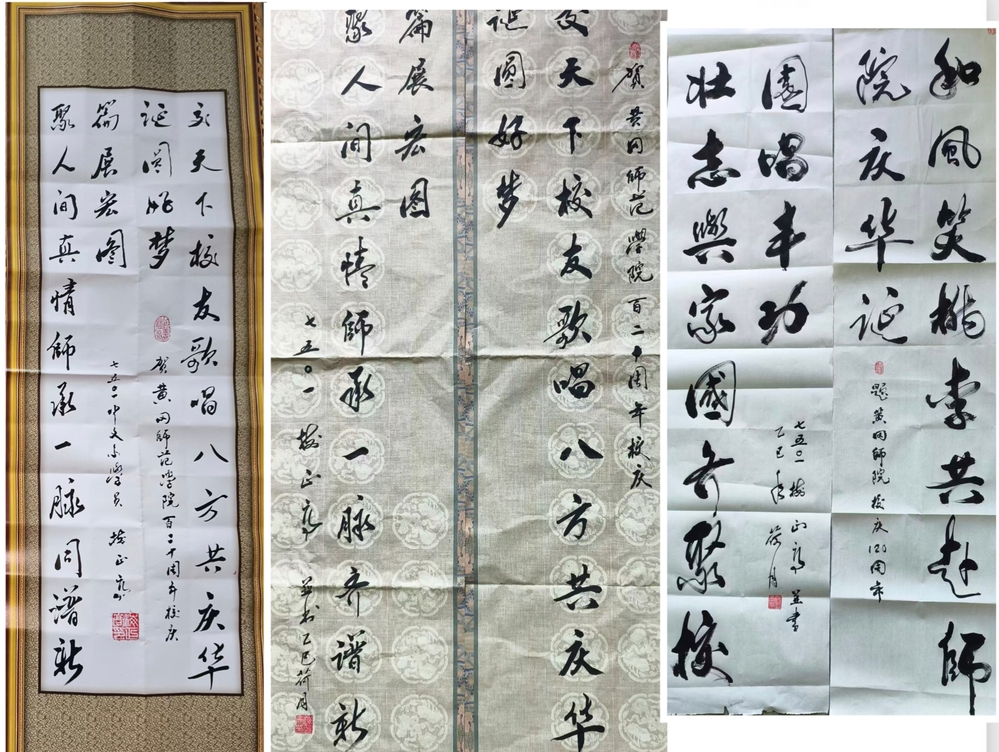 交天下校友歌唱八方共庆华
诞圆好梦
贺黄冈师范学院百二十周年校庆
聚人间真情師承一脉同谱新
篇展宏图
七五〇一中文系学员 正亮
贺黄冈師范學院百二十周年校庆
友天下校友歌唱八方共庆华
诞圆好梦
聚人间真情師承一脉齐谱新
篇展宏图
七五〇一 正亮 并书 乙巳荷月
和風笑桃李共赴師
院庆华诞
题黄冈師院校庆120周年
壮志興家國齐聚校
園唱丰功
七五〇一 正亮 并書
乙巳年荷月